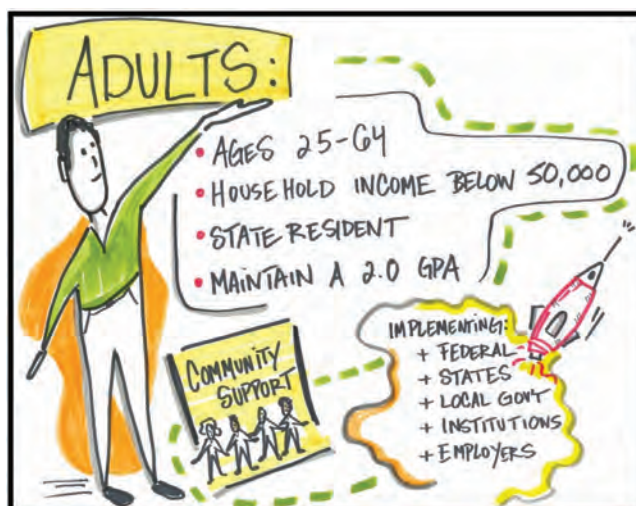 ADULTS:
• AGES 25-64
• HOUSEHOLD INCOME BELOW 50,000
• STATE RESIDENT
• MAINTAIN A 2.0 GPA
COMMUNITY
SUPPORT
IMPLEMENTING:
+ FEDERAL
+ STATES
+ LOCAL GOV'T
+ INSTITUTIONS
+ EMPLOYERS